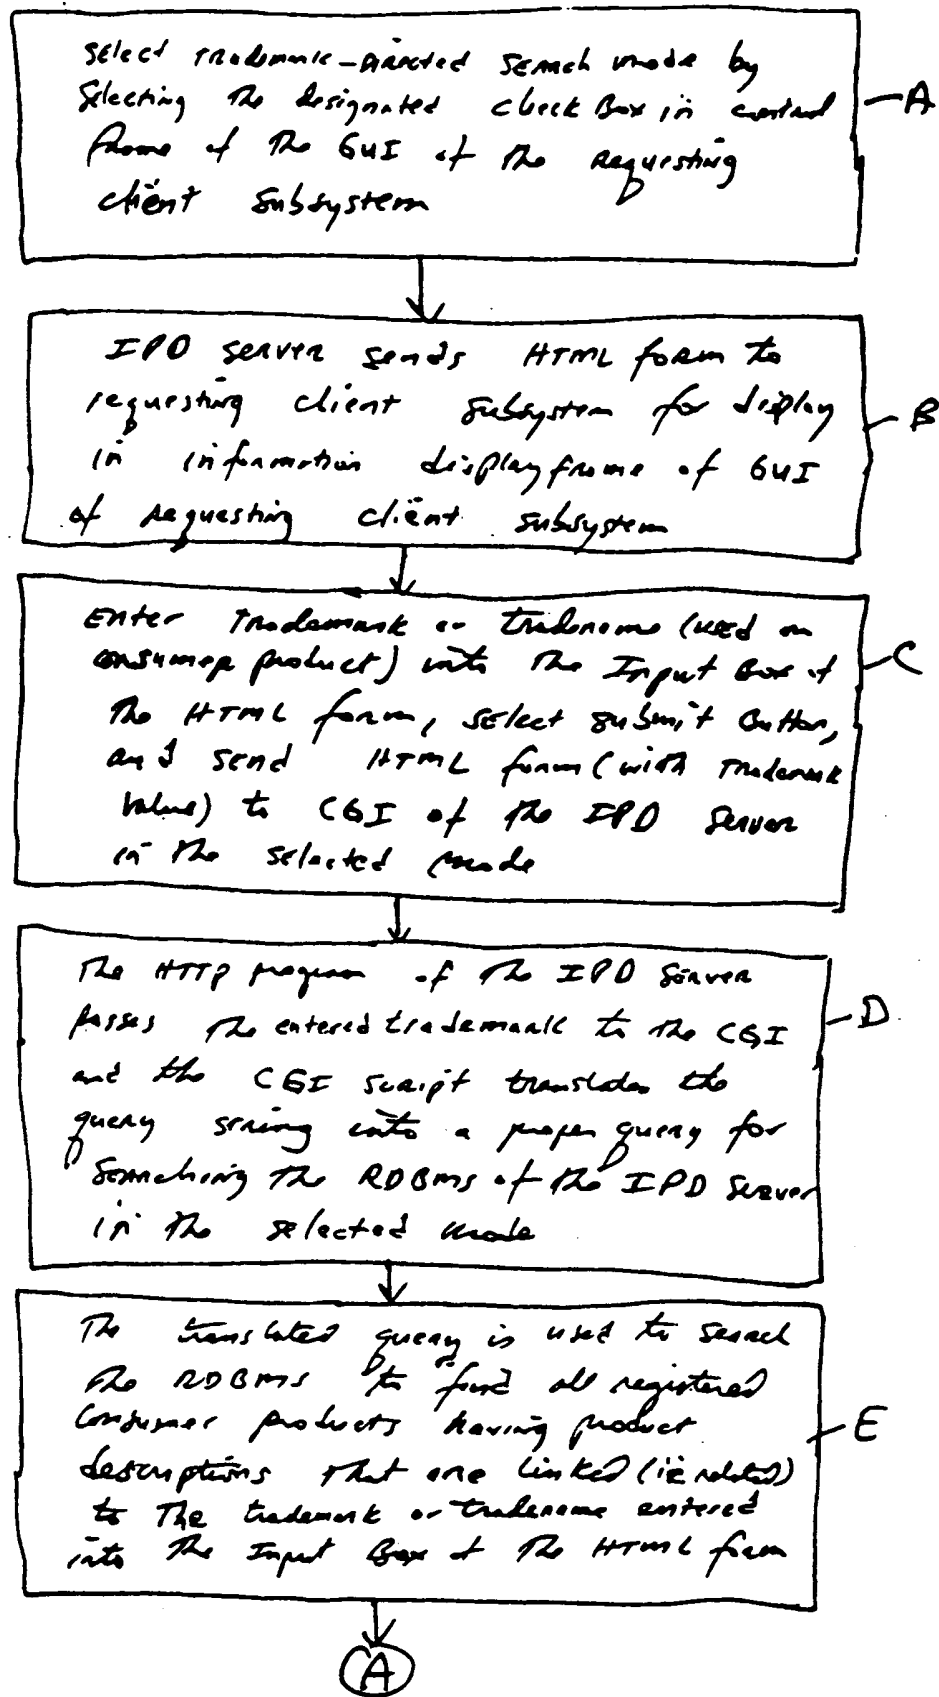 Select Trademark-Directed Search mode by
Selecting the designated check Box in control
frame of the GUI of the requesting
client subsystem
A
IPD server sends HTML form to
requesting client subsystem for display
in information display frame of GUI
of requesting client subsystem
B
Enter Trademark or tradename (used on
consumer product) into the Input Box of
the HTML form, select submit Button,
and send HTML form (with Trademark
value) to CGI of the IPD Server
in the selected mode
C
The HTTP program of the IPD Server
passes the entered trademark to the CGI
and the CGI script translates the
query string into a proper query for
Searching the RDBMS of the IPD Server
in the selected mode
D
The translated query is used to search
the RDBMS to find all registered
Consumer products having product
descriptions that are linked (ie related)
to The trademark or tradename entered
into The Input Box of The HTML form
E
A